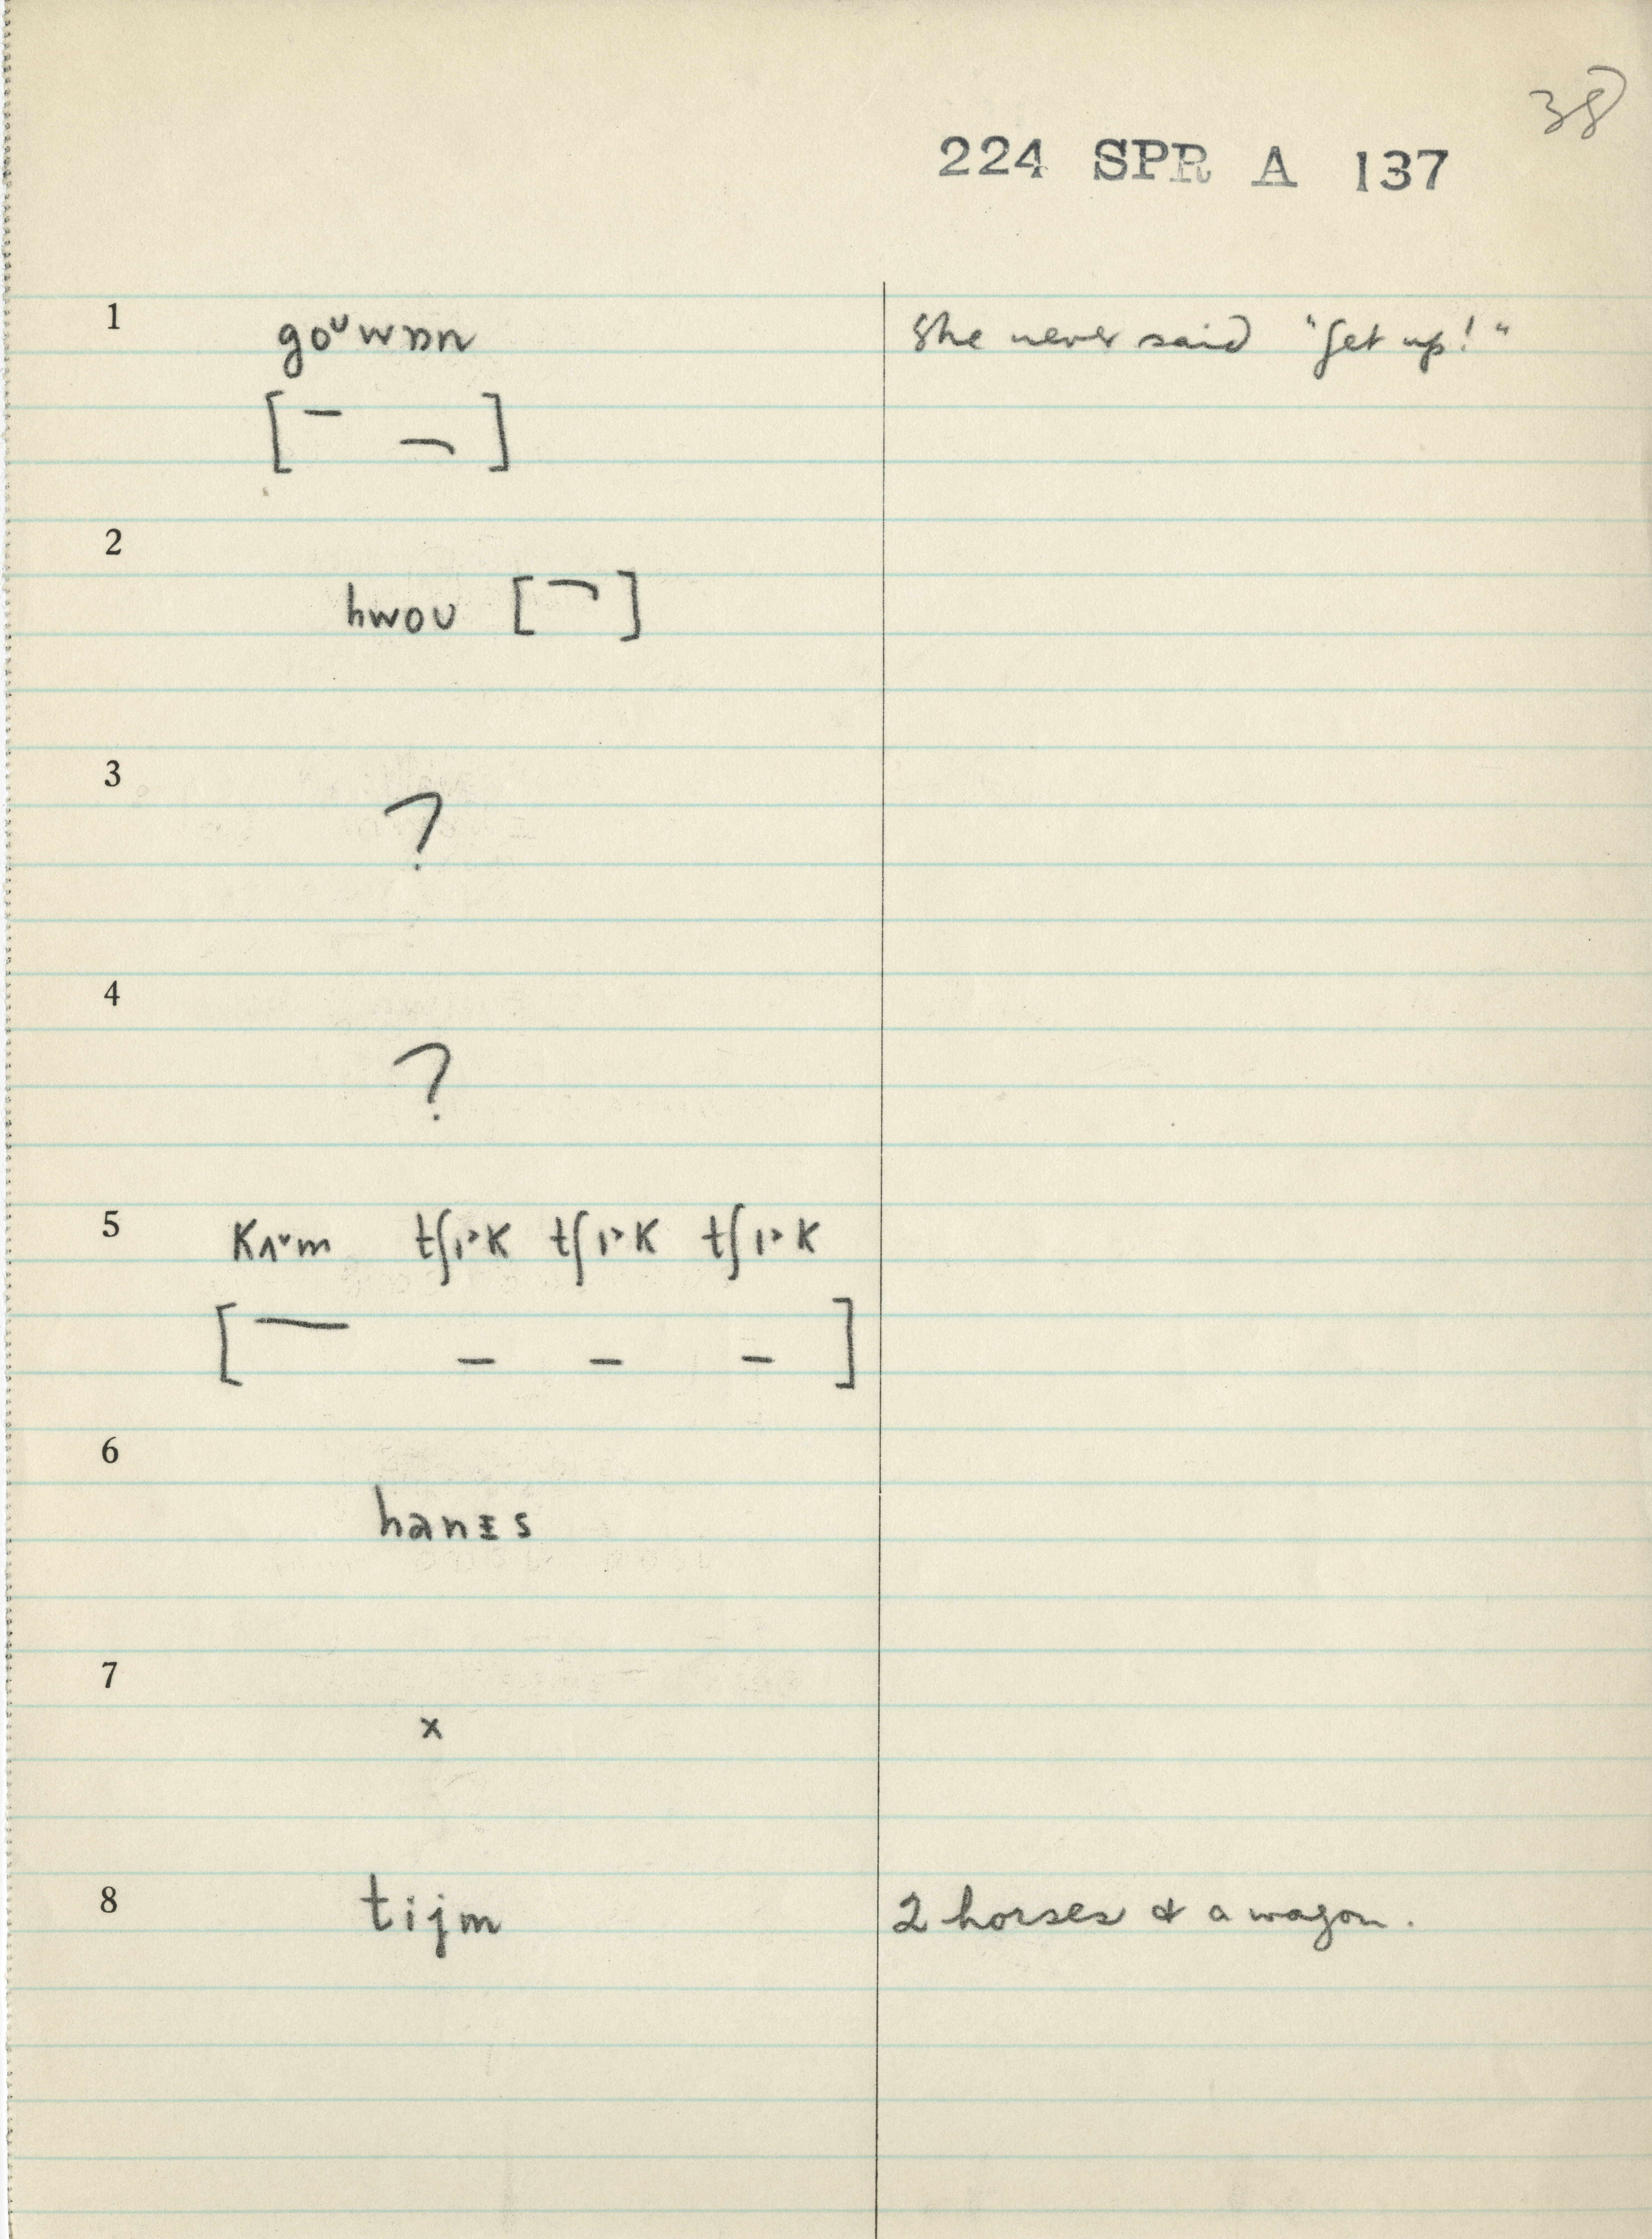 38
224 SPR A 137
1 goᴜwɒn She never said "Get up!"
[ – ¬ ]
2
hwoʊ [ ¬ ]
3
?
4
?
5 kʌ˅m tʃɪ˃k tʃɪ˃k tʃɪ˃k
[ — – – – ]
6
hanɪs
7
x
8 tijm 2 horses & a wagon.